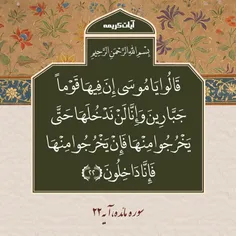 آیات کریمه
بِسْمِ اللهِ الرَّحْمنِ الرَّحِیمِ
قَالُوا یَا مُوسَى إِنَّ فِیهَا قَوْماً
جَبَّارِینَ وَإِنَّا لَنْ نَدْخُلَهَا حَتَّى
یَخْرُجُوا مِنْهَا فَإِنْ یَخْرُجُوا مِنْهَا
فَإِنَّا دَاخِلُونَ ﴿۲۲﴾
سوره مائده، آیه ۲۲